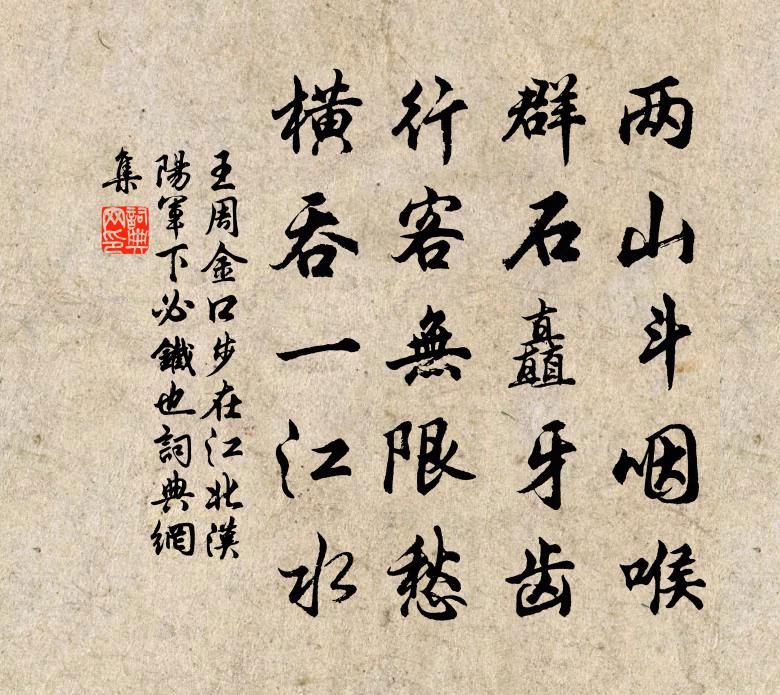 两山斗咽喉
群石矗牙齿
行客無限愁
横吞一江水
王周金口步在江北漢
陽軍下必鐵也詞典網
集
詞典
网印